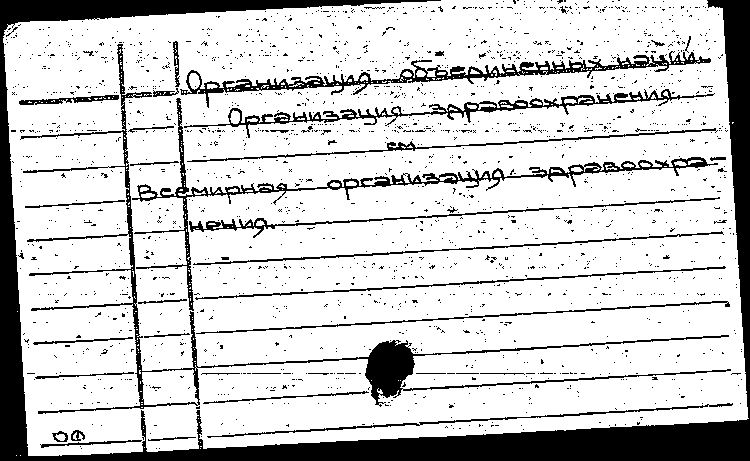 Организация объединенных наций.
Организация здравоохранения.
см
Всемирная организация здравоохра-
нения.
ОФ